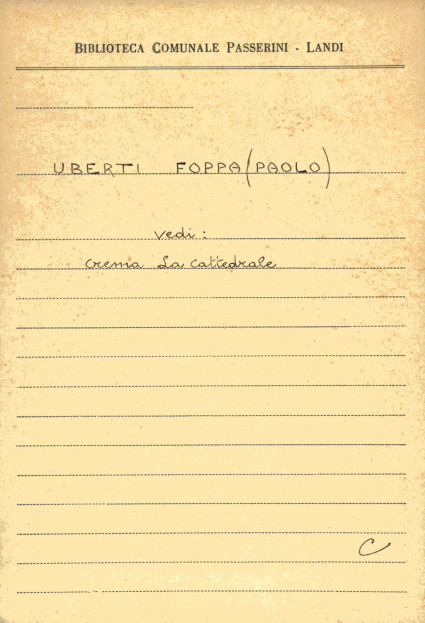 BIBLIOTECA COMUNALE PASSERINI - LANDI
UBERTI FOPPA (PAOLO)
Vedi:
Crema La Cattedrale
C